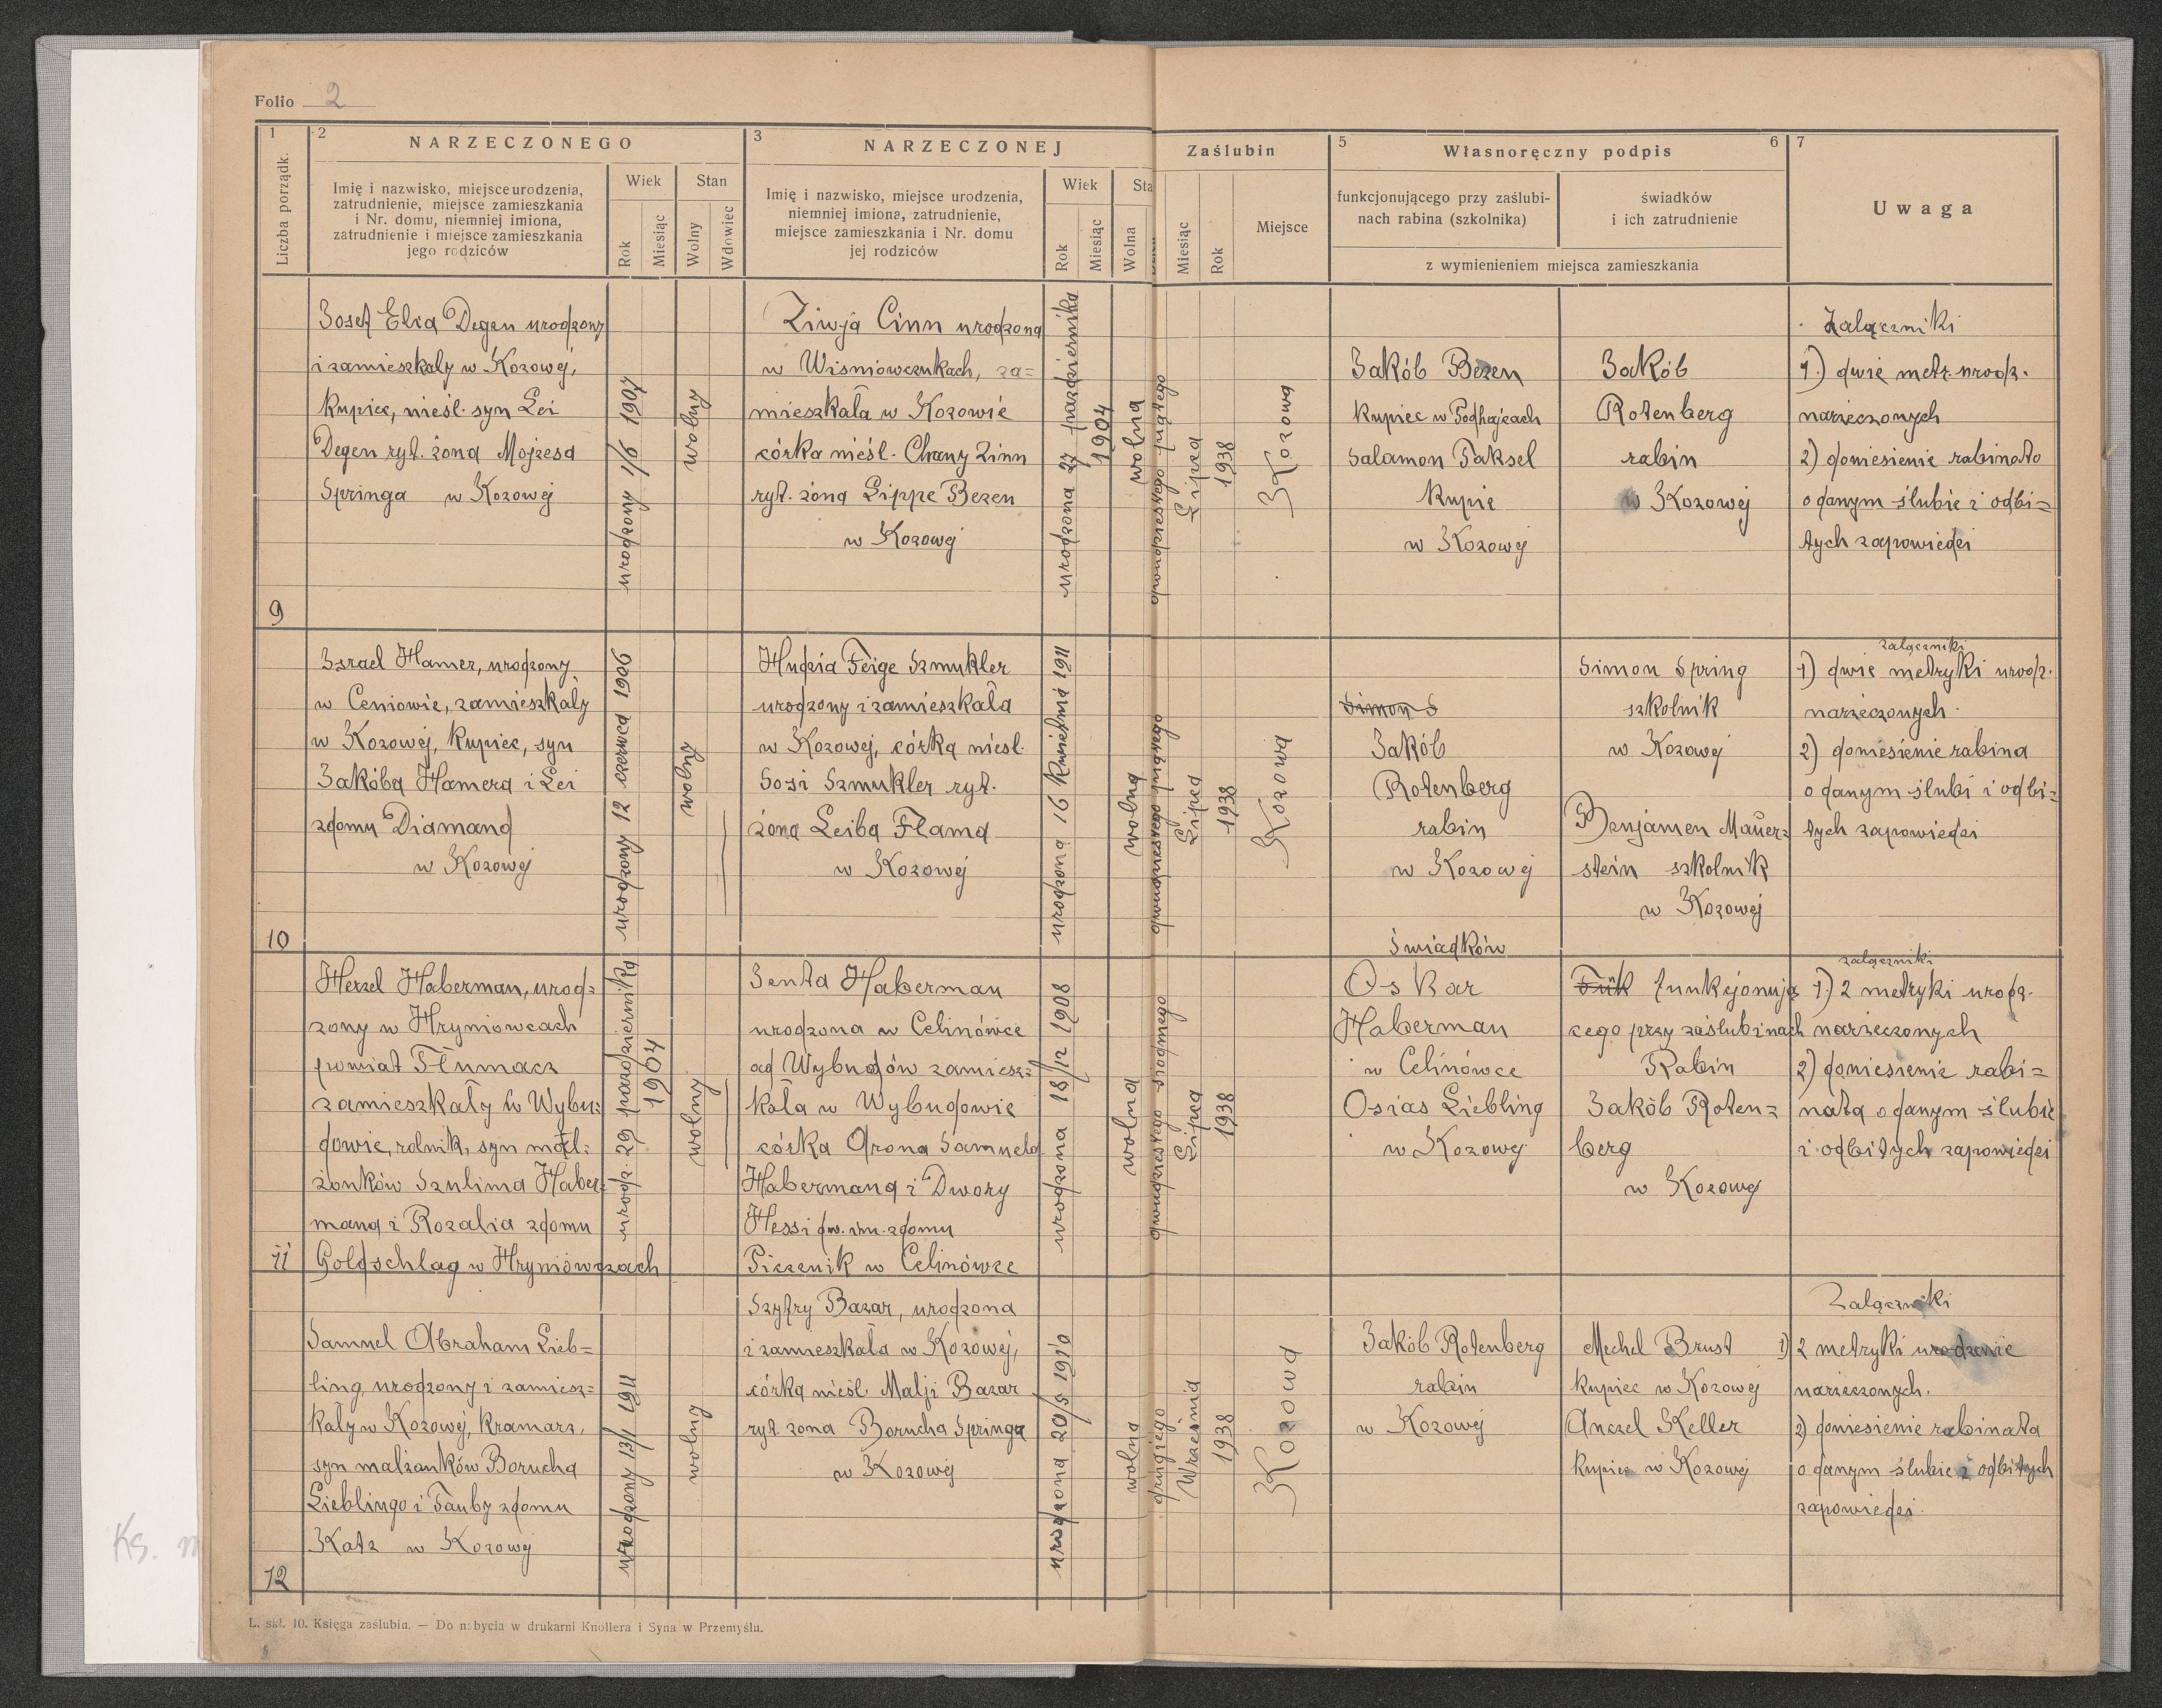 Folio 2
1
Liczba porządk.
2
NARZECZONEGO
Imię i nazwisko, miejsce urodzenia,
zatrudnienie, miejsce zamieszkania
i Nr. domu, niemniej imiona,
zatrudnienie i miejsce zamieszkania
jego rodziców
Wiek
Rok
Miesiąc
Stan
Wolny
Wdowiec
3
NARZECZONEJ
Imię i nazwisko, miejsce urodzenia,
niemniej imiona, zatrudnienie,
miejsce zamieszkania i Nr. domu
jej rodziców
Wiek
Rok
Miesiąc
Sta
Wolna
Zaślubin
Miesiąc
Rok
Miejsce
5
Własnoręczny podpis
6
funkcjonującego przy zaślubi-
nach rabina (szkolnika)
świadków
i ich zatrudnienie
z wymienieniem miejsca zamieszkania
7
Uwaga
9
Josef Elia Degen urodzony
i zamieszkały w Kozowej,
kupiec, nieśl. syn Lei
Degen ryt. żona Mojżesa
Springa w Kozowej
urodzony 1/6 1907
wolny
Ziwja Cinn urodzona
w Wiśniowczukach, za=
mieszkała w Kozowie
córka nieśl. Chany Zinn
ryt. żona Lippe Bezen
w Kozowej
urodzona 27 października
1904
wolna
dwudziestego piątego
Lipca
1938
Kozowa
Jakób Bezen
kupiec w Podhajcach
Salamon Taksel
kupie
w Kozowej
Jakób
Rotenberg
rabin
w Kozowej
Załączniki
1.) dwie metr. urodz.
narzeczonych
2) doniesienie rabinato
o danym ślubie i odbi=
tych zapowiedzi
10
Izrael Hamer, urodzony
w Ceniowie, zamieszkały
w Kozowej, kupiec, syn
Jakóba Hamera i Lei
zdomu Diamand
w Kozowej
urodzony 12 czerwca 1906
wolny
Hudzia Feige Szmukler
urodzony i zamieszkała
w Kozowej, córka nieśl.
Sosi Szmukler ryt.
żona Leiba Flama
w Kozowej
urodzona 16 kwietnia 1911
wolna
dwudziestego piątego
Lipca
1938
Kozowa
Simon S
Jakób
Rotenberg
rabin
w Kozowej
Simon Spring
szkolnik
w Kozowej
Benjamen Mauer=
stein szkolnik
w Kozowej
załączniki
1) dwie metryki urodz.
narzeczonych.
2) doniesienie rabina
o danym ślubi i odbi=
tych zapowiedzi
11
Herzel Haberman, urod=
zony w Hryniowcach
powiat Tłumacz
zamieszkały w Wybu=
dowie, rolnik, syn mał=
żonków Szulima Haber=
mana i Rozalia zdomu
Goldschlag w Hryniowczach
urodz. 29 października
1904
wolny
Jenta Haberman
urodzona w Celinówce
ad Wybudów zamiesz=
kała w Wybudowie
córka Arona Samuela
Habermana i Dwory
Hessi dw. im. zdomu
Piczenik w Celinówce
urodzona 18/12 1908
wolna
dwudziestego siódmego
Lipca
1938
Świadków
Oskar
Haberman
w Celinówce
Osias Liebling
w Kozowej
funkcjonują
cego przy zaślubinach
Rabin
Jakób Roten=
berg
w Kozowej
załączniki
1) 2 metryki urodz.
narzeczonych
2) doniesienie rabi=
nata o danym ślubie
i odbitych zapowiedzi
12
Samuel Abraham Lieb=
ling, urodzony i zamiesz=
kały w Kozowej, kramarz,
syn małżonków Borucha
Lieblingo i Tauby zdomu
Katz w Kozowej
urodzony 13/1 1911
wolny
Szyfry Bazar, urodzona
i zamieszkała w Kozowej,
córka nieśl Malji Bazar
ryt. żona Borucha Springa
w Kozowej
urodzona 20/5 1910
wolna
drugiego
Września
1938
Kozowa
Jakób Rotenberg
rabin
w Kozowej
Mechel Brust
kupiec w Kozowej
Anczel Keller
kupiec w Kozowej
Załączniki
1) 2 metryki urodzenie
narzeczonych.
2) doniesienie rabinata
o danym ślubie i odbitych
zapowiedzi.
L. skł. 10. Księga zaślubin. — Do nabycia w drukarni Knollera i Syna w Przemyślu.
Ks. m